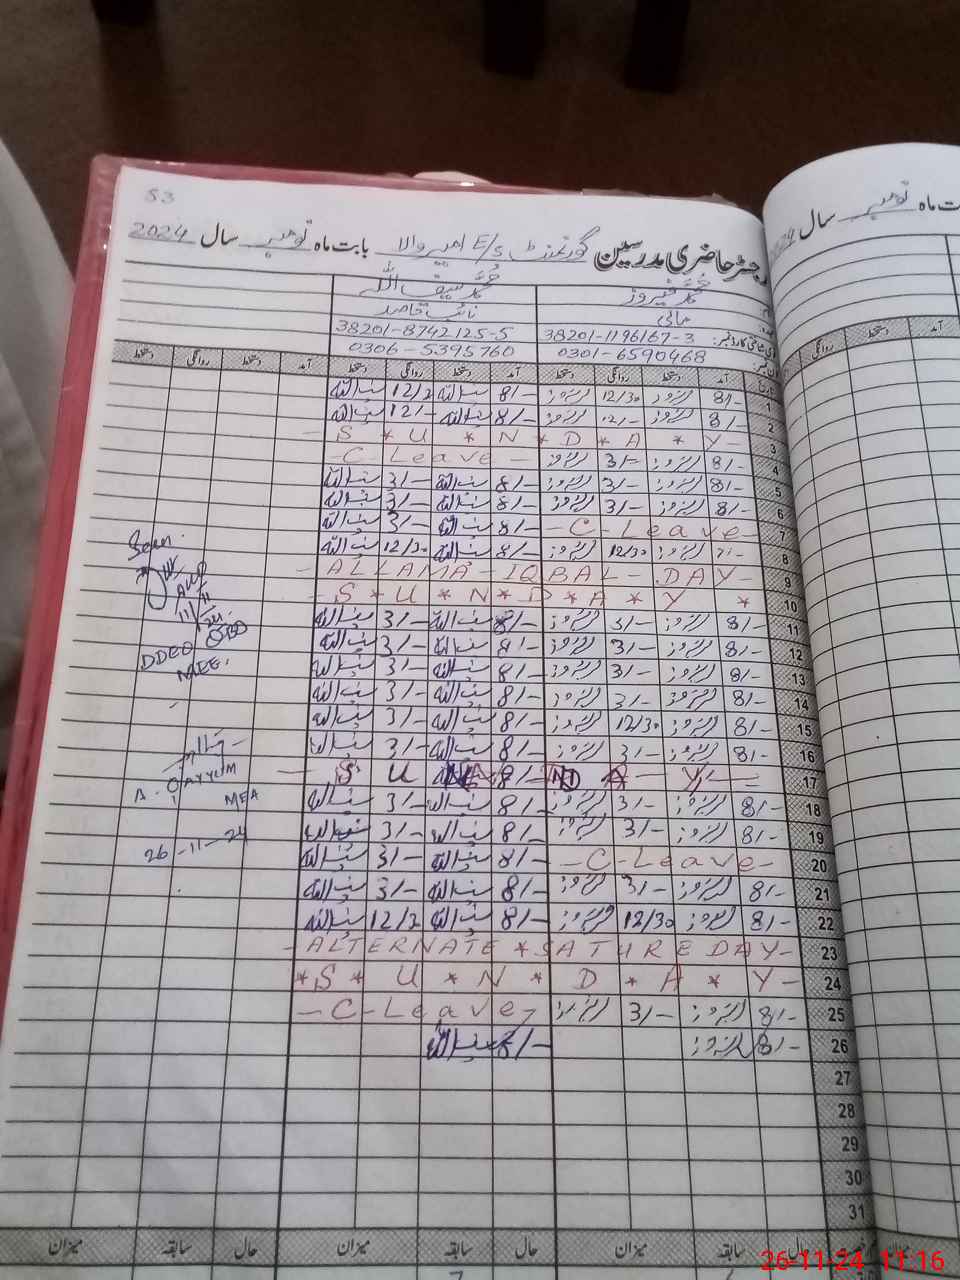 53
رجسٹر حاضری مدرسین گورنمنٹ E/S امیر والا بابت ماہ نومبر سال 2024
محمد فیروز محمد سیف اللہ
مالی نائب قاصد
38201-1196167-3 38201-8742125-5
0301-6590468 0306-5395760
آمد دستخط روانگی دستخط آمد دستخط روانگی دستخط آمد دستخط روانگی دستخط
1 8/- فیروز 12/30 فیروز 8/- سیف اللہ 12/3 سیف اللہ
2 8/- فیروز 12/- فیروز 8/- سیف اللہ 12/- سیف اللہ
3 - S * U * N * D * A * Y -
4 8/- فیروز 3/- فیروز - C - Leave -
5 8/- فیروز 3/- فیروز 8/- سیف اللہ 3/- سیف اللہ
6 8/- فیروز 3/- فیروز 8/- سیف اللہ 3/- سیف اللہ
7 - C - Leave - 8/- سیف اللہ 3/- سیف اللہ
8 8/- فیروز 12/30 فیروز 8/- سیف اللہ 12/30 سیف اللہ
9 - ALLAMA - IQBAL - DAY -
10 - S * U * N * D * A * Y *
11 8/- فیروز 3/- فیروز 8/- سیف اللہ 3/- سیف اللہ
12 8/- فیروز 3/- فیروز 8/- سیف اللہ 3/- سیف اللہ
13 8/- فیروز 3/- فیروز 8/- سیف اللہ 3/- سیف اللہ
14 8/- فیروز 3/- فیروز 8/- سیف اللہ 3/- سیف اللہ
15 8/- فیروز 12/30 فیروز 8/- سیف اللہ 3/- سیف اللہ
16 8/- فیروز 3/- فیروز 8/- سیف اللہ 3/- سیف اللہ
17 S U N D A Y
18 8/- فیروز 3/- فیروز 8/- سیف اللہ 3/- سیف اللہ
19 8/- فیروز 3/- فیروز 8/- سیف اللہ 3/- سیف اللہ
20 - C - Leave - 8/- سیف اللہ 3/- سیف اللہ
21 8/- فیروز 3/- فیروز 8/- سیف اللہ 3/- سیف اللہ
22 8/- فیروز 12/30 فیروز 8/- سیف اللہ 12/3 سیف اللہ
23 - ALTERNATE * SATUREDAY -
24 * S * U * N * D * A * Y -
25 8/- فیروز 3/- فیروز - C - Leave -
26 8/- فیروز 8/- سیف اللہ
27
28
29
30
31
حال سابقہ میزان حال سابقہ میزان حال سابقہ میزان
Seen
11/11/24
DDEO
MEE.
A. QAYYUM
MEA
26-11-24
بابت ماہ نومبر سال 2024
آمد دستخط روانگی
26-11-24 11:16